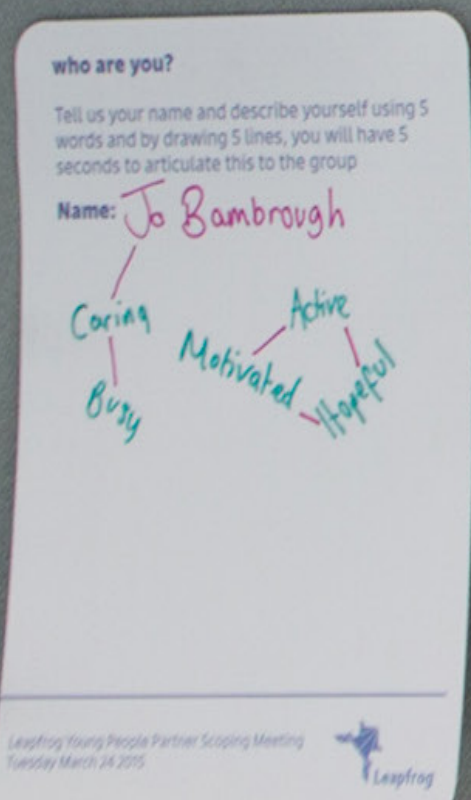 who are you?
Tell us your name and describe yourself using 5
words and by drawing 5 lines, you will have 5
seconds to articulate this to the group
Name: Jo Bambrough
Caring
Busy
Active
Motivated
Hopeful
Leapfrog Young People Partner Scoping Meeting
Tuesday March 24 2015
Leapfrog